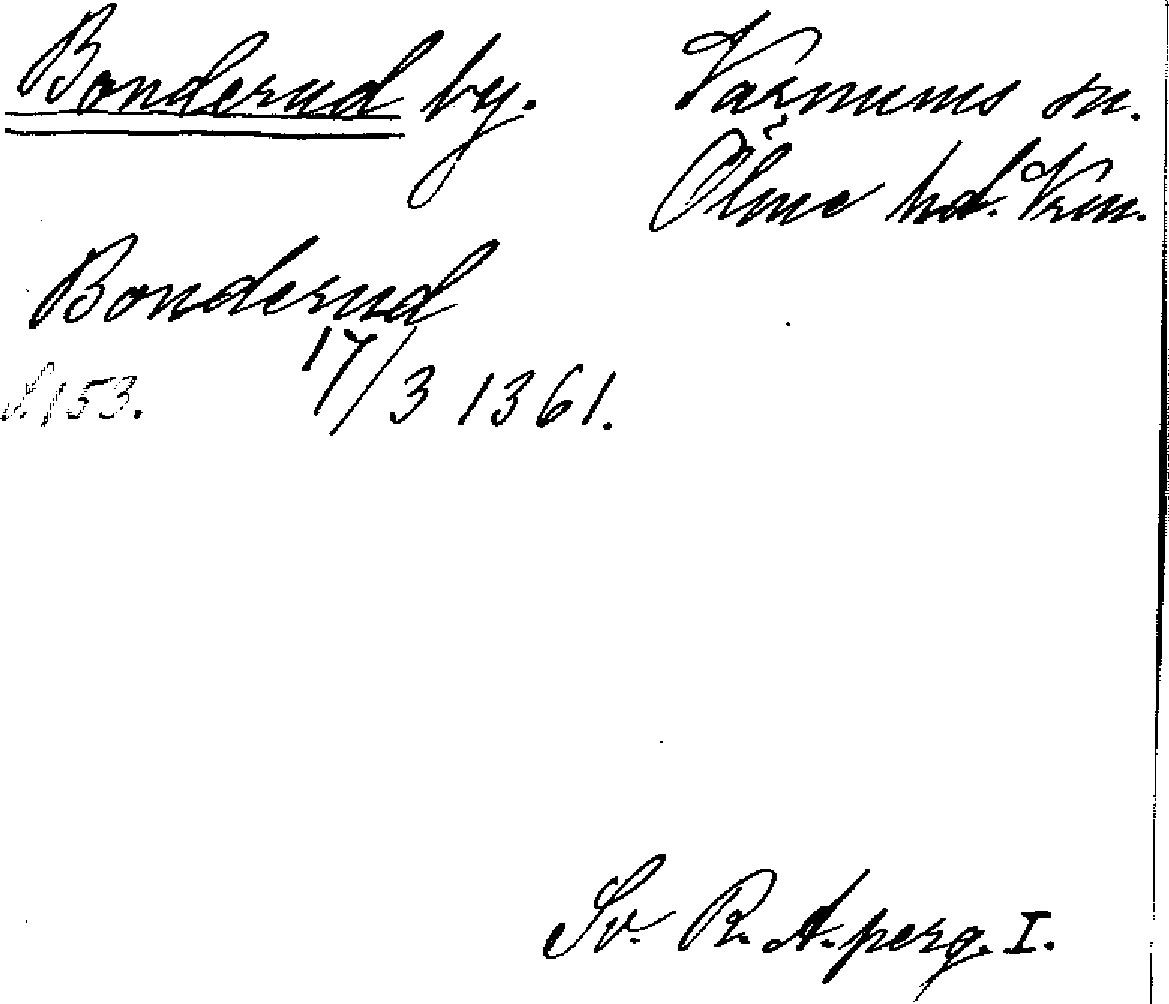 Bonderud by. Varnums sn.
Ölme hd. Vrm.
Bonderud
S. 153. 17/3 1361.
Sv. R. A. perg. I.